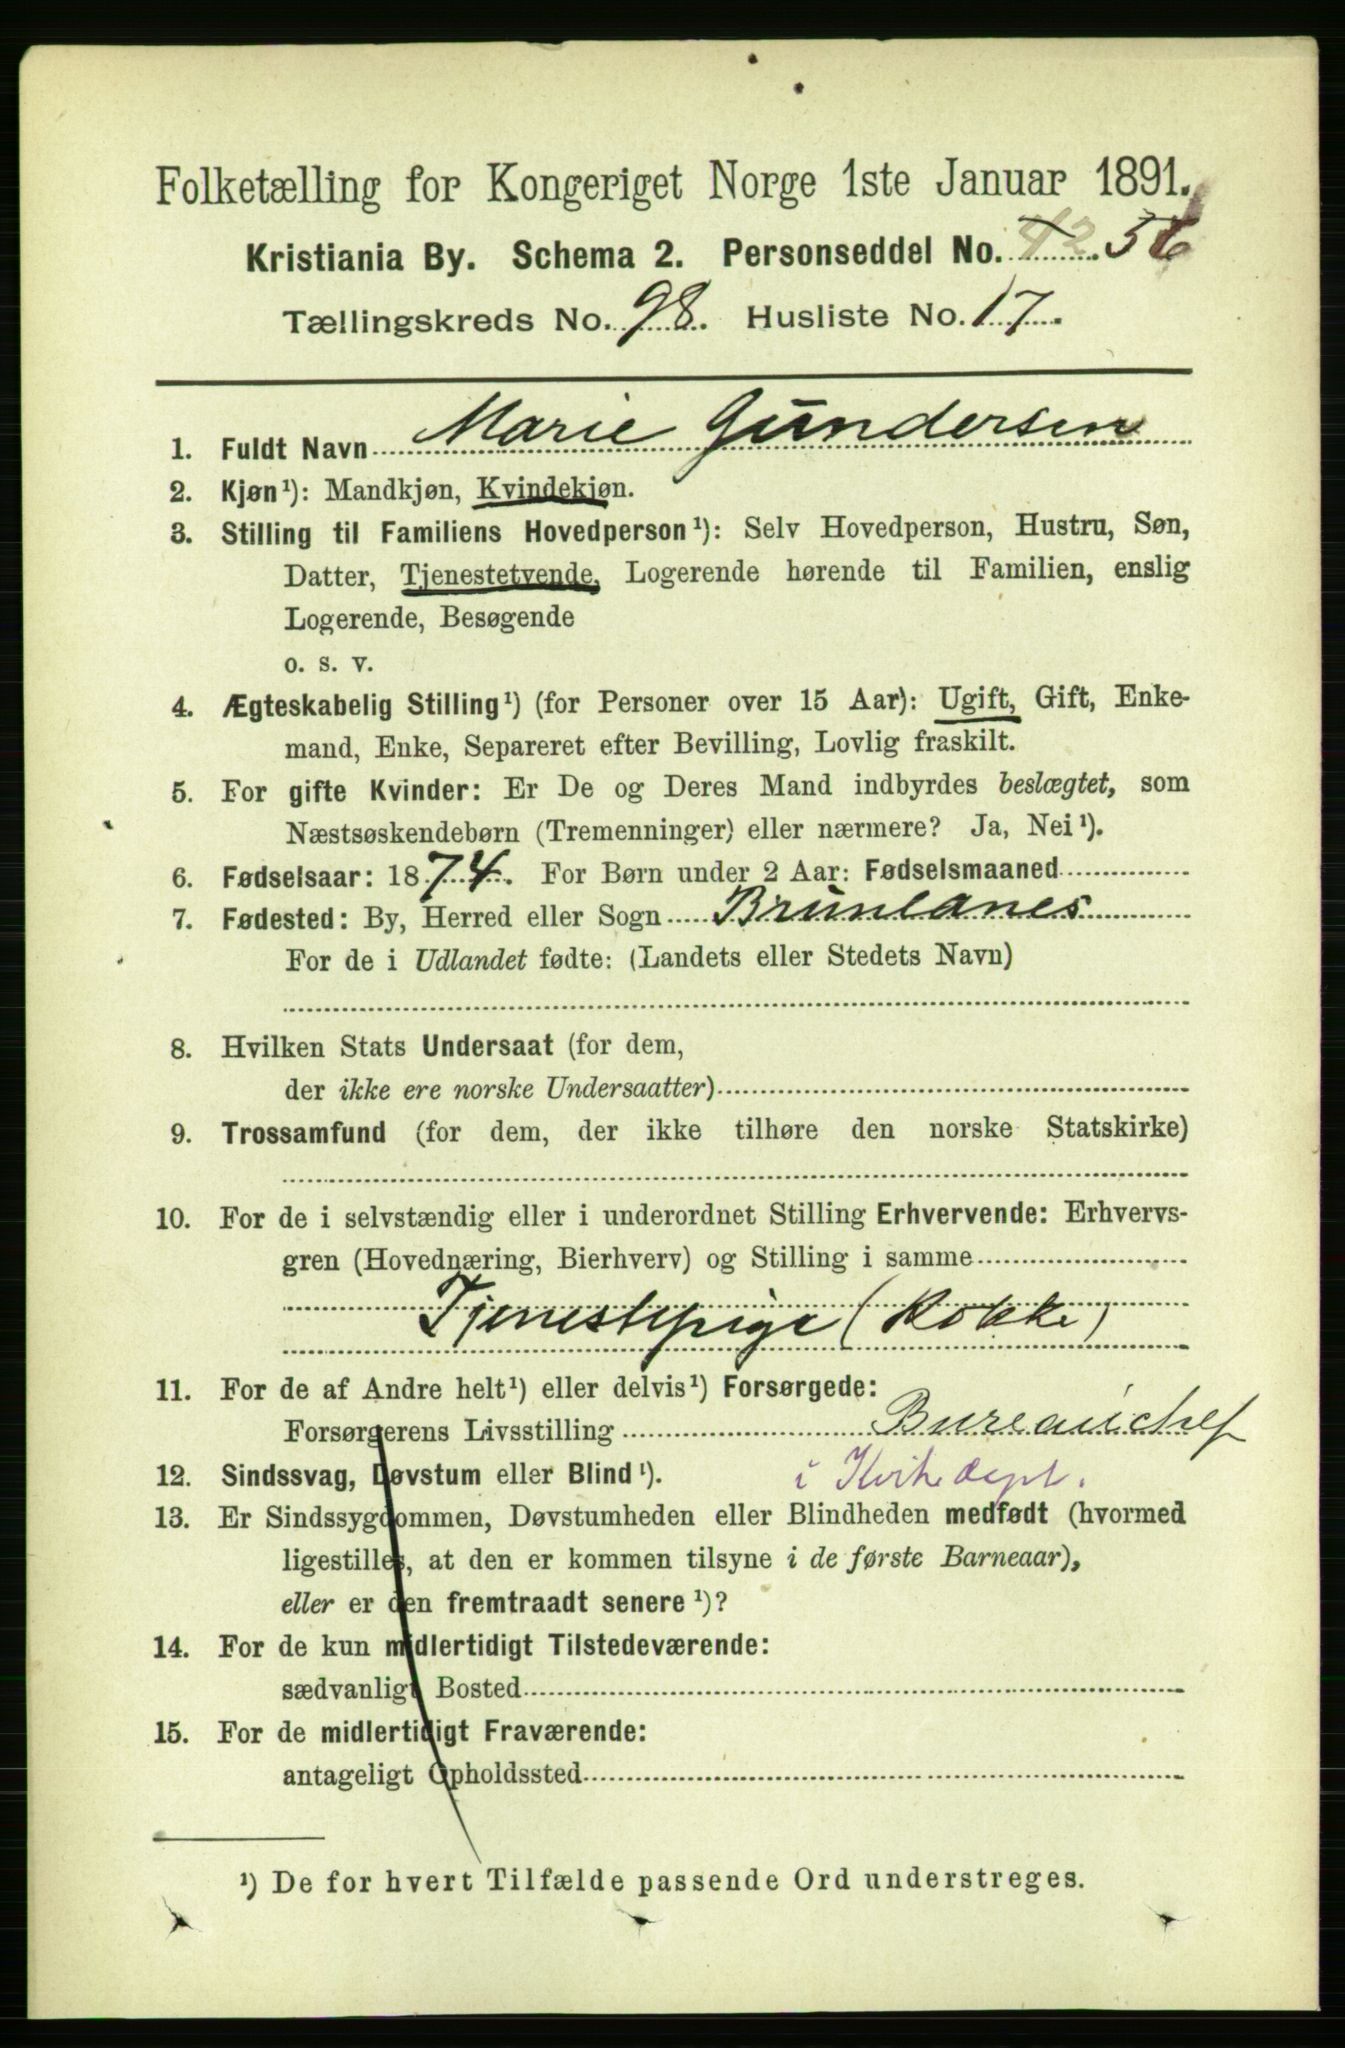 Folketælling for Kongeriget Norge 1ste Januar 1891.
Kristiania By. Schema 2. Personseddel No. 42 56
Tællingskreds No. 98. Husliste No. 17.
1. Fuldt Navn Marie Gundersen
2. Kjøn¹): Mandkjøn, Kvindekjøn.
3. Stilling til Familiens Hovedperson¹): Selv Hovedperson, Hustru, Søn,
Datter, Tjenestetyende, Logerende hørende til Familien, enslig
Logerende, Besøgende
o. s. v.
4. Ægteskabelig Stilling¹) (for Personer over 15 Aar): Ugift, Gift, Enke-
mand, Enke, Separeret efter Bevilling, Lovlig fraskilt.
5. For gifte Kvinder: Er De og Deres Mand indbyrdes beslægtet, som
Næstsøskendebørn (Tremenninger) eller nærmere? Ja, Nei¹).
6. Fødselsaar: 1874. For Børn under 2 Aar: Fødselsmaaned
7. Fødested: By, Herred eller Sogn Brunlanes
For de i Udlandet fødte: (Landets eller Stedets Navn)
8. Hvilken Stats Undersaat (for dem,
der ikke ere norske Undersaatter)
9. Trossamfund (for dem, der ikke tilhøre den norske Statskirke)
10. For de i selvstændig eller i underordnet Stilling Erhvervende: Erhvervs-
gren (Hovednæring, Bierhverv) og Stilling i samme
Tjenestepige (Kokke)
11. For de af Andre helt¹) eller delvis¹) Forsørgede:
Forsørgerens Livsstilling Bureauchef
12. Sindssvag, Døvstum eller Blind¹). i Kirkedept.
13. Er Sindssygdommen, Døvstumheden eller Blindheden medfødt (hvormed
ligestilles, at den er kommen tilsyne i de første Barneaar),
eller er den fremtraadt senere¹)?
14. For de kun midlertidigt Tilstedeværende:
sædvanligt Bosted
15. For de midlertidigt Fraværende:
antageligt Opholdssted
¹) De for hvert Tilfælde passende Ord understreges.